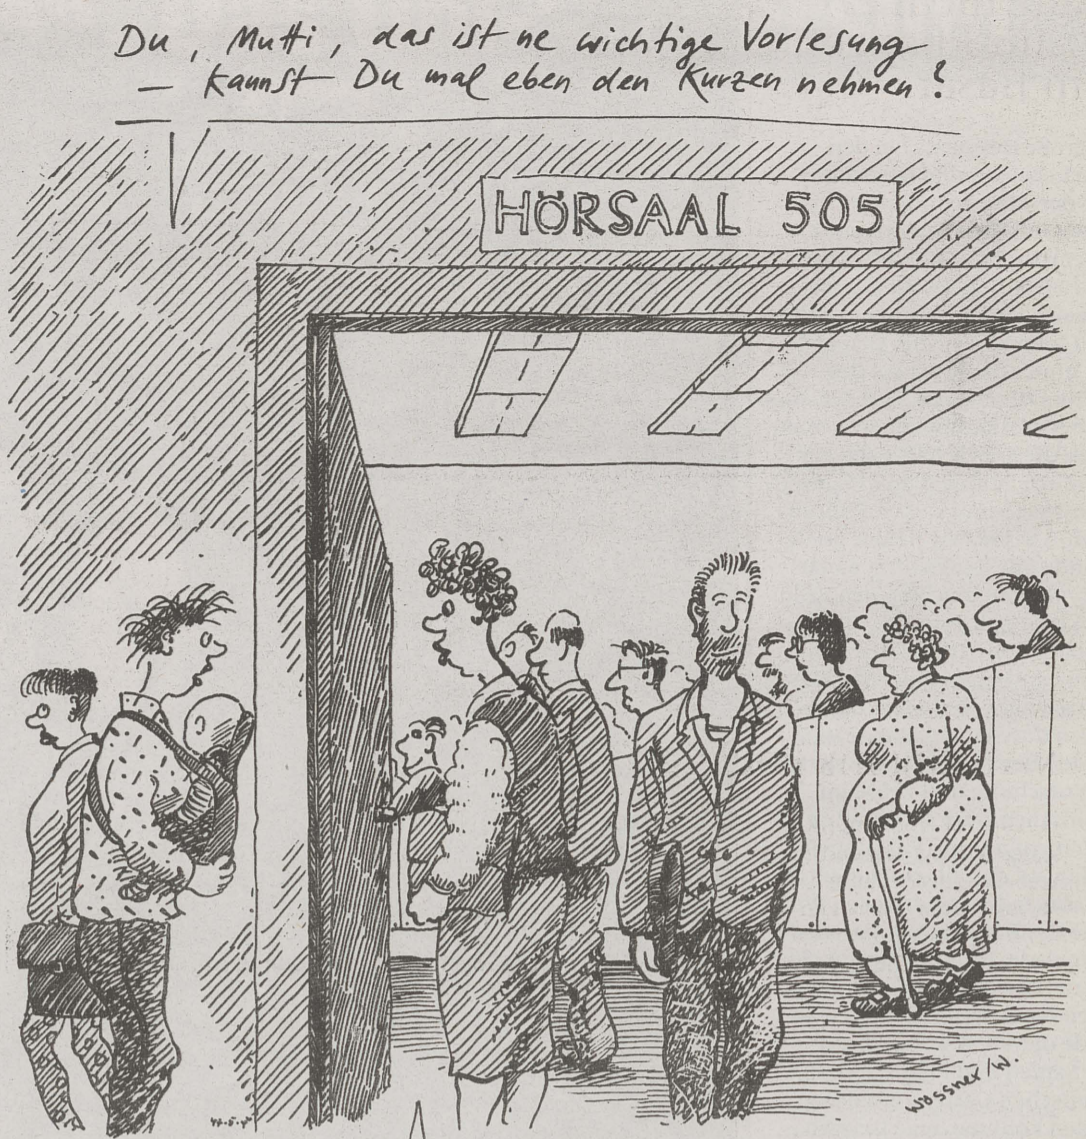 Du, Mutti, das ist ne wichtige Vorlesung
– kannst Du mal eben den Kurzen nehmen?
HÖRSAAL 505
Wössner/W.